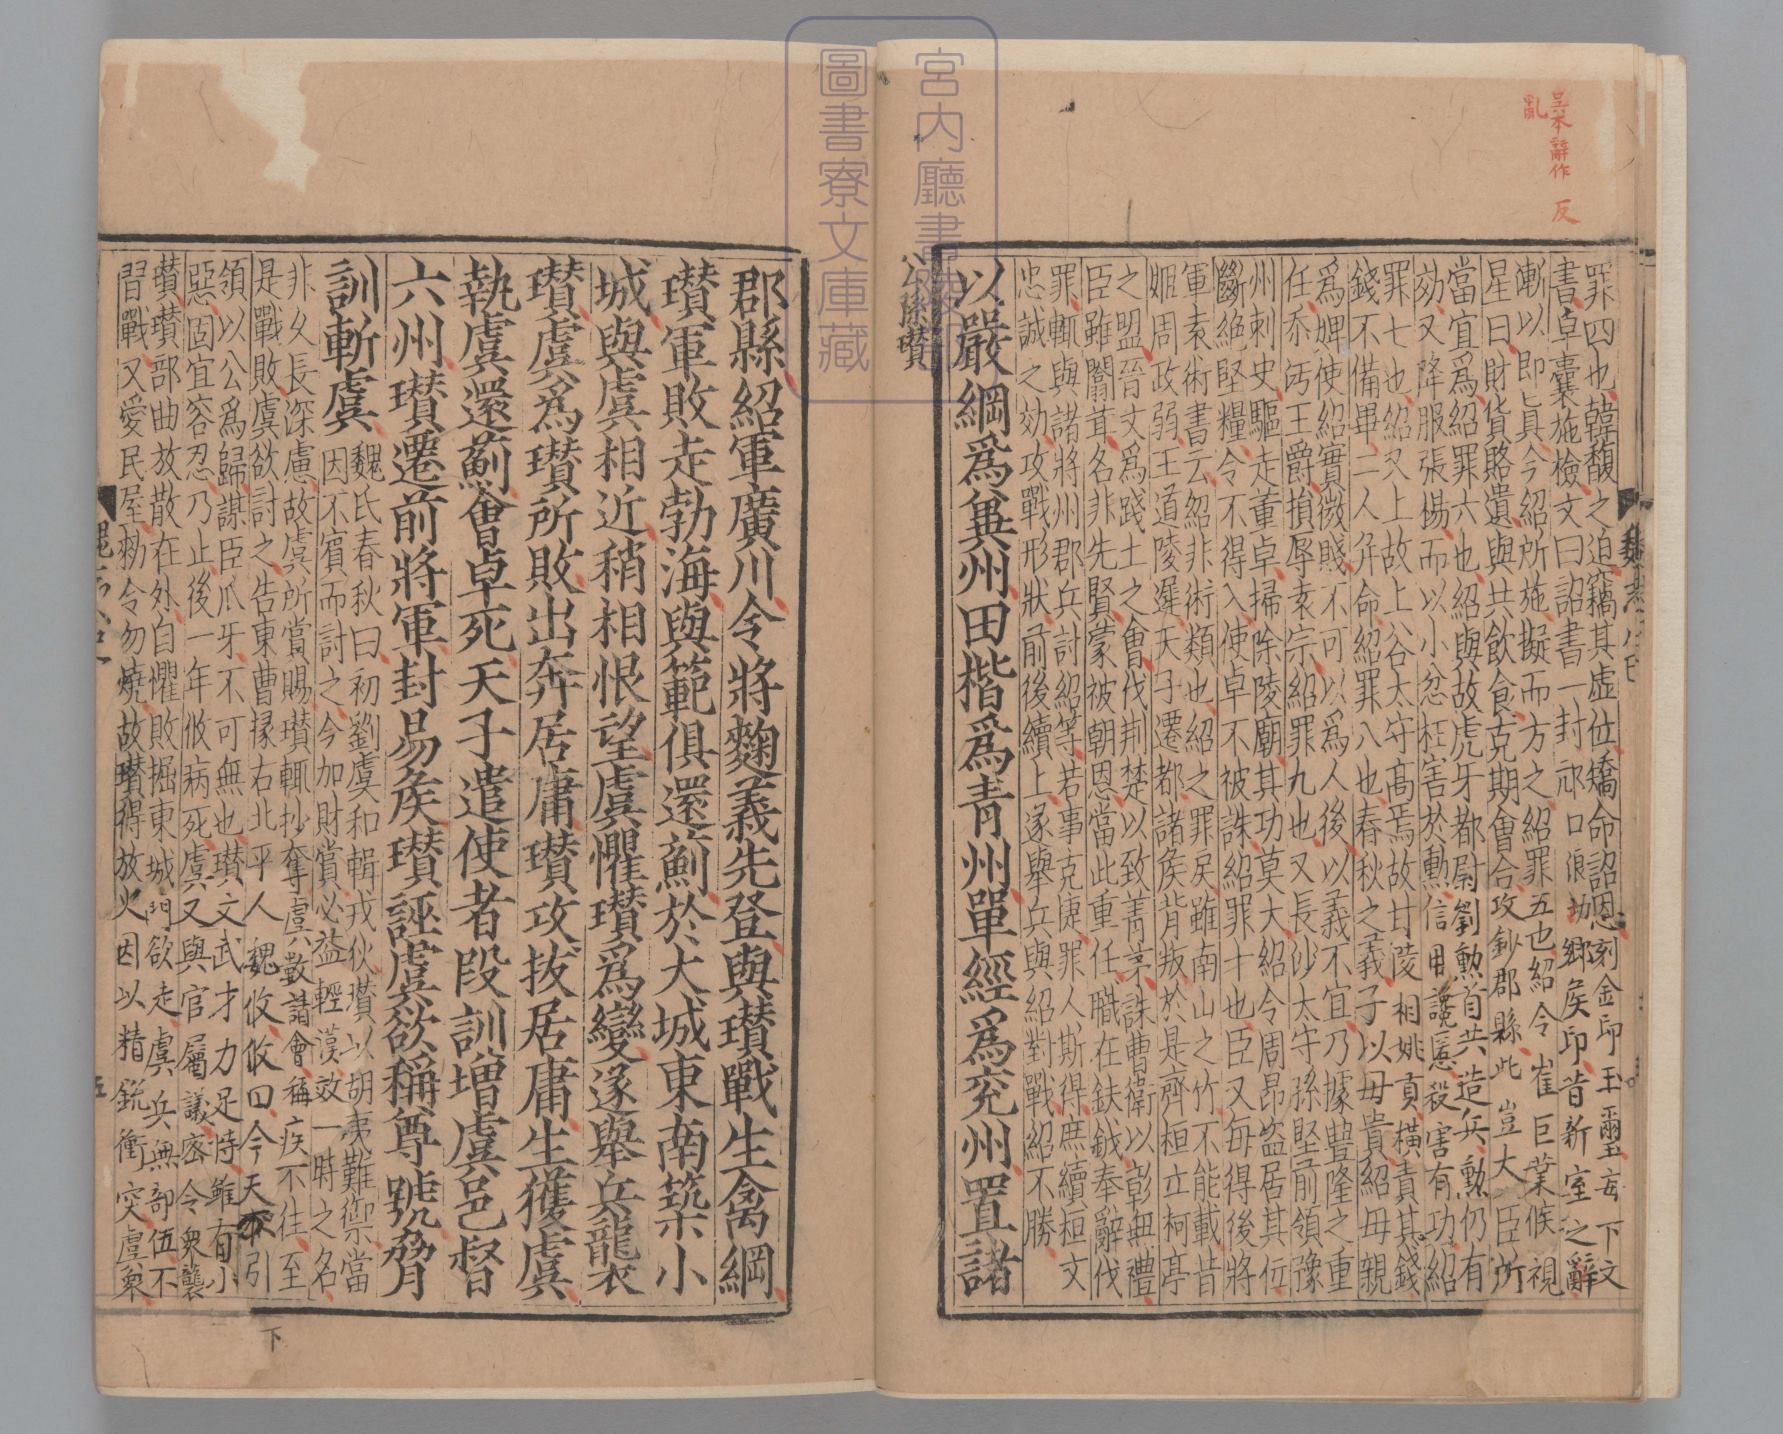 呈本辭作反
亂
罪四也韓馥之迫竊其虛位矯命詔恩刻金印玉璽每下文
書皁囊施檢文曰詔書一封邟口浪功鄉侯印昔新室之辭
漸以即眞今紹所施擬而方之紹罪五也紹令崔巨業候視
星日財貨賂遺與共飲食克期會合攻鈔郡縣此豈大臣所
當宜爲紹罪六也紹與故虎牙都尉劉勲首共造兵勲仍有
効又降服張楊而以小忿枉害於勲信用讒慝殺害有功紹
罪七也紹又上故上谷太守高焉故甘陵相姚貢橫責其錢
錢不備畢二人并命紹罪八也春秋之義子以母貴紹母親
爲婢使紹實微賤不可以爲人後以義不宜乃據豐隆之重
任忝污王爵損辱袁宗紹罪九也又長沙太守孫堅前領豫
州刺史驅走董卓掃除陵廟其功莫大紹令周昂盜居其位
斷絶堅糧令不得入使卓不被誅紹罪十也臣又每得後將
軍袁術書云紹非術類也紹之罪戾雖南山之竹不能載昔
姬周政弱王道陵遲天子遷都諸侯背叛於是齊桓立柯亭
之盟晉文爲踐土之會伐荆楚以致菁茅誅曹衛以彰無禮
臣雖闒茸名非先賢蒙被朝恩當此重任職在鈇鉞奉辭伐
罪輙與諸將州郡兵討紹等若事克捷罪人斯得庶續桓文
忠誠之効攻戰形狀前後續上遂舉兵與紹對戰紹不勝
以嚴綱爲冀州田楷爲青州單經爲兖州置諸
公孫瓚
宮内廳書陵部
圖書寮文庫藏
郡縣紹軍廣川令將麴義先登與瓚戰生禽綱
瓚軍敗走勃海與範俱還薊於大城東南築小
城與虞相近稍相恨望虞懼瓚爲變遂舉兵襲
瓚虞爲瓚所敗出奔居庸瓚攻拔居庸生獲虞
執虞還薊會卓死天子遣使者段訓增虞邑督
六州瓚遷前將軍封易侯瓚誣虞欲稱尊號脅
訓斬虞
魏氏春秋曰初劉虞和輯戎狄瓚以胡夷難禦當
因不賓而討之今加財賞必益輕漢效一時之名
非久長深慮故虞所賞賜瓚輒抄奪虞數請會稱疾不往至
是戰敗虞欲討之告東曹掾右北平人魏收收曰今天下引
領以公爲歸謀臣爪牙不可無也瓚文武才力足恃雖有小
惡固宜容忍乃止後一年攸病死虞又與官屬議密令衆襲
瓚瓚部曲放散在外自懼敗掘東城門欲走虞兵無部伍不
習戰又愛民屋勑令勿燒故瓚得放火因以精銳衝突虞衆
下